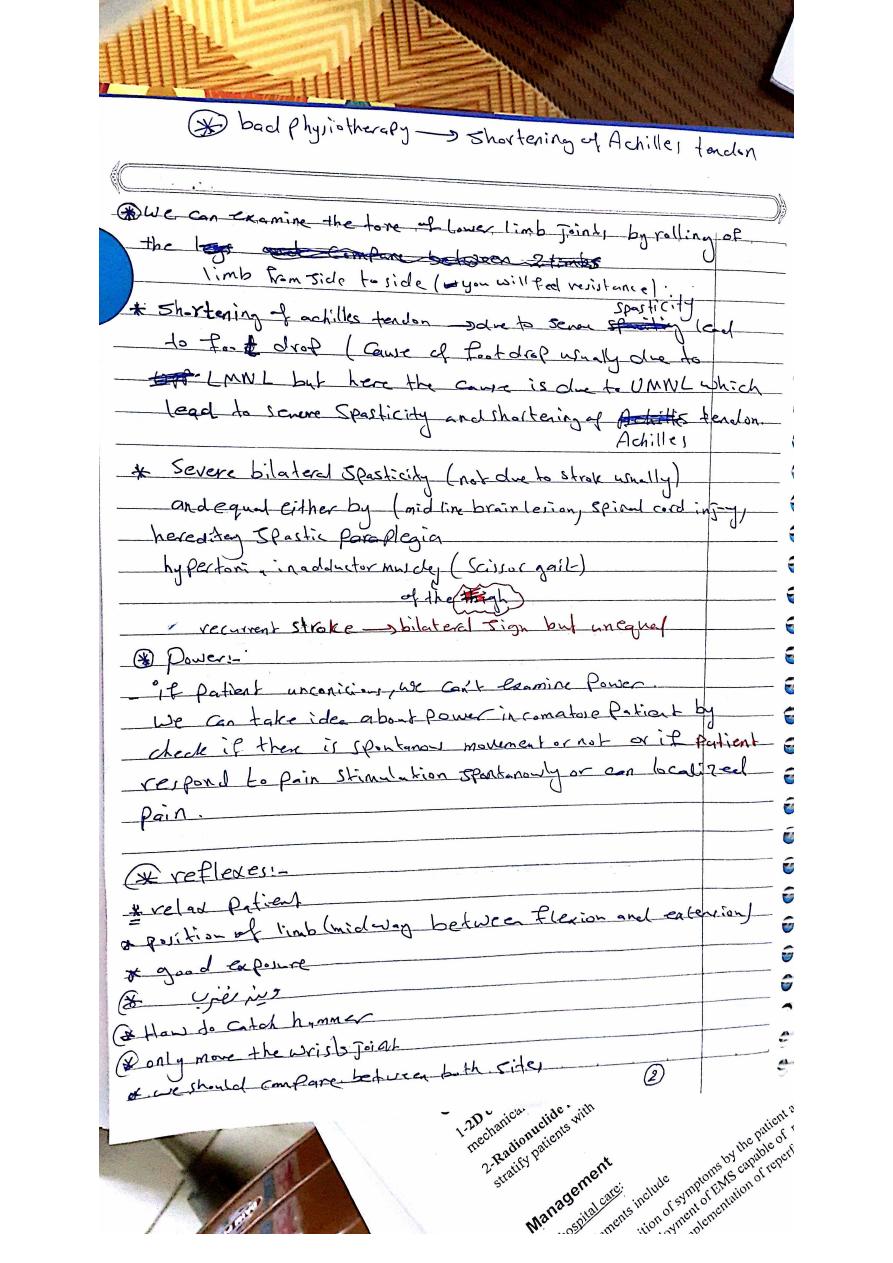 * bad physiotherapy → shortening of Achilles tendon
* We can examine the tone of lower limb joints by rolling of
the legs and compare between 2 limbs
limb from side to side (you will feel resistance).
spasticity
* Shortening of achilles tendon → due to severe lead
to foot drop (cause of foot drop usually due to
LMNL but here the cause is due to UMNL which
lead to severe spasticity and shortening of Achilles tendon.
Achilles
* Severe bilateral spasticity (not due to strok usually)
and equal either by (mid line brain lesion, spinal cord injury,
heredity spastic paraplegia
hypertonia in adductor muscles (Scissor gait)
of the thigh
recurrent stroke → bilateral sign but unequal
* Power:-
- if patient unconicious, we can't examine Power.
We can take idea about power in comatose patient by
check if there is spontanous movement or not or if patient
respond to pain stimulation spontanously or can localized
pain.
* reflexes:-
* relax patient
* position of limb (midway between flexion and extension)
* good exposure
* وينه نضرب
* How do catch hummer
* only move the wrists joint
* we should compare between both sites
2
1-2D
mechanical
2-Radionuclide
stratify patients with
Management
hospital care:
ments include
ition of symptoms by the patient
oyment of EMS capable of
plementation of reperf